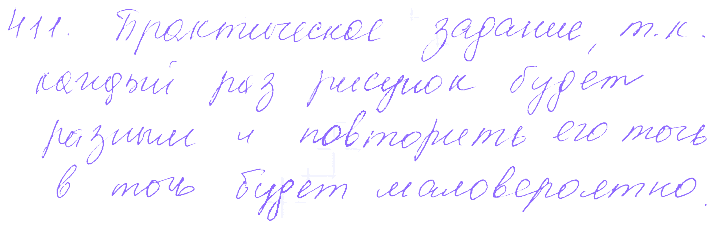 411. Практическое задание, т.к.
каждый раз рисунок будет
разным и повторить его точь
в точь будет маловероятно.